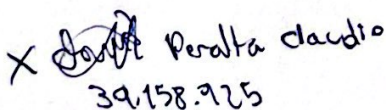 X Peralta claudio
39.158.925